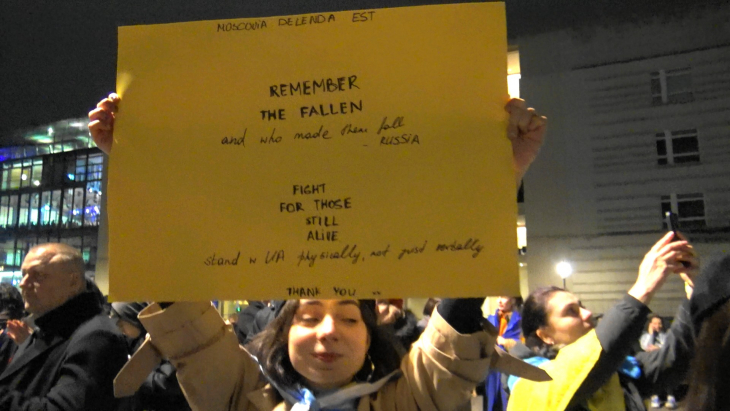 MOSCOVIA DELENDA EST
REMEMBER
THE FALLEN
and who made them fall
- RUSSIA
FIGHT
FOR THOSE
STILL
ALIVE
stand w UA physically, not just verbally
THANK YOU